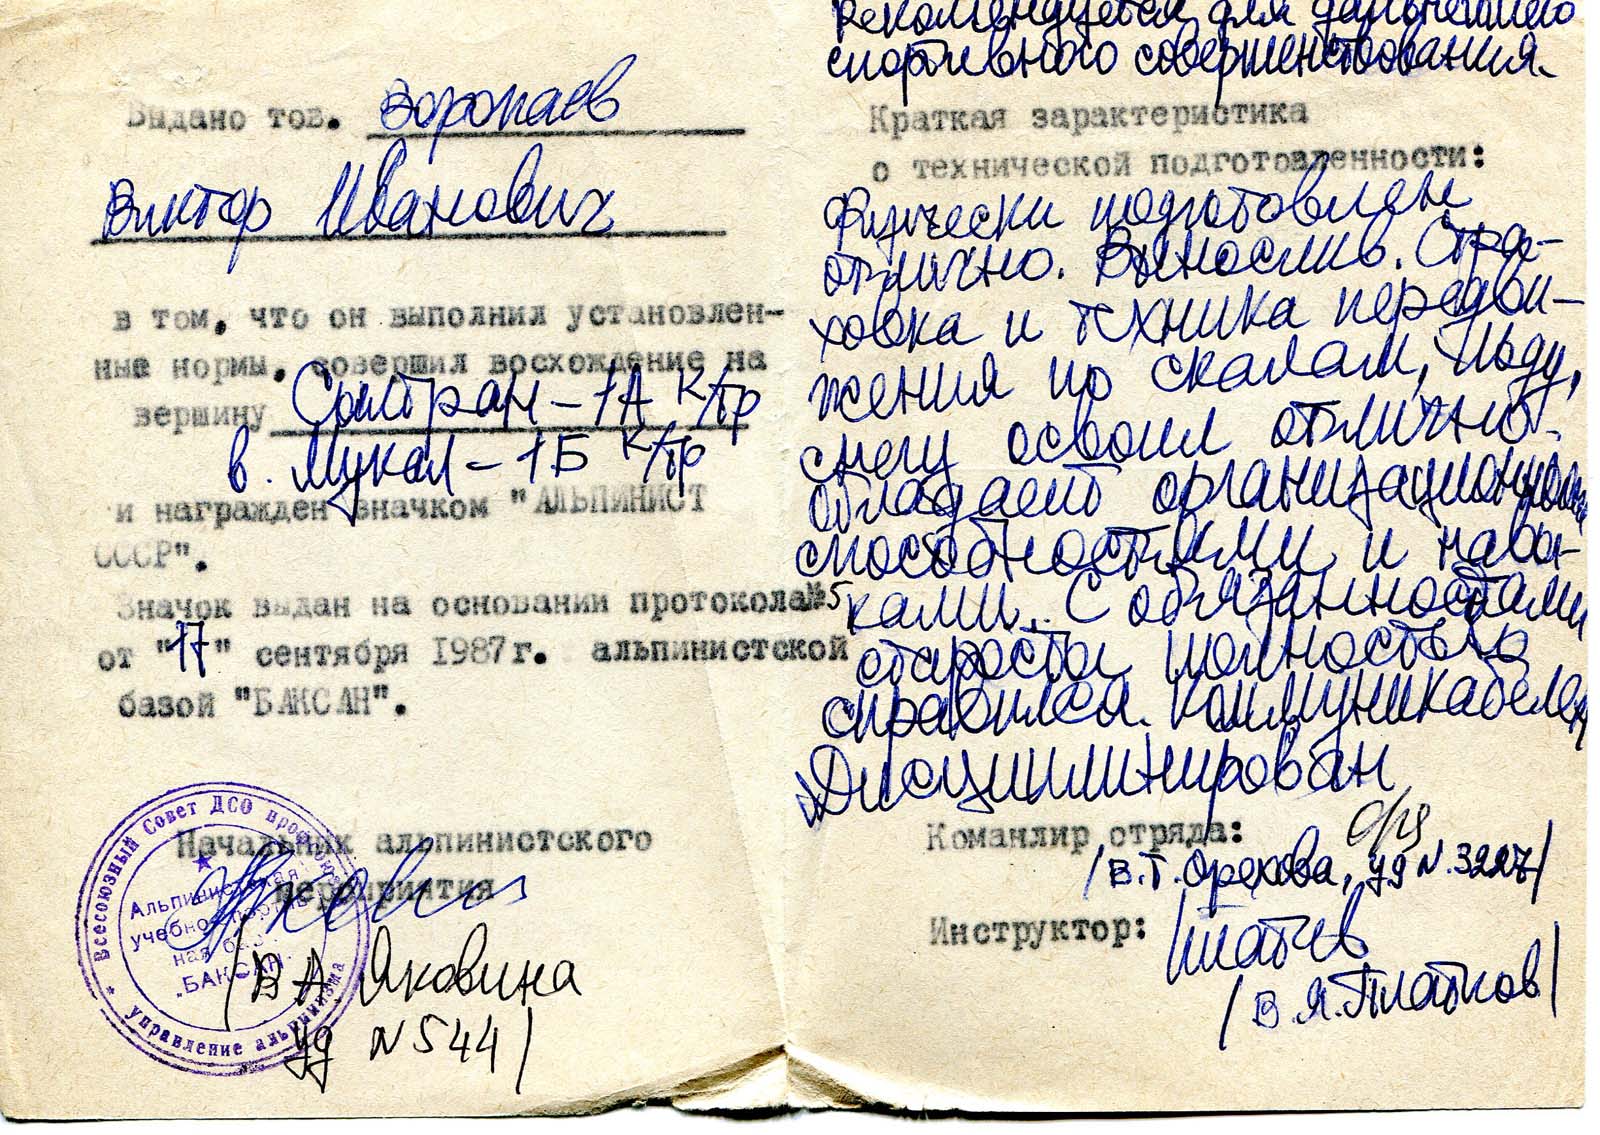 Выдано тов. Воропаев
Виктор Иванович
в том, что он выполнил установлен-
ные нормы, совершил восхождение на
вершину Сылтран - 1А к/тр
в. Мукал - 1Б к/тр
и награжден значком "АЛЬПИНИСТ
СССР".
Значок выдан на основании протокола №5
от "17" сентября 1987г. альпинистской
базой "БАКСАН".
Начальник альпинистского
мероприятия
/В А Яковина
уд N 544/
Всесоюзный Совет ДСО профсоюзов
управление альпинизма
Альпинистская
учебно-спортив
ная база
"БАКСАН"
рекомендуется для дальнейшего
спортивного совершенствования.
Краткая зарактеристика
о технической подготовленности:
Физически подготовлен
отлично. Вынослив. Стра-
ховка и техника передви-
жения по скалам, льду,
снегу освоил отлично.
Обладает организационными
способностями и навы-
ками. С обязанностями
старосты полностью
справился. Коммуникабелен
Дисциплинирован
Командир отряда:
/В.Т. Орехова, уд N. 3227/
Инструктор:
/В.Я. Платков/